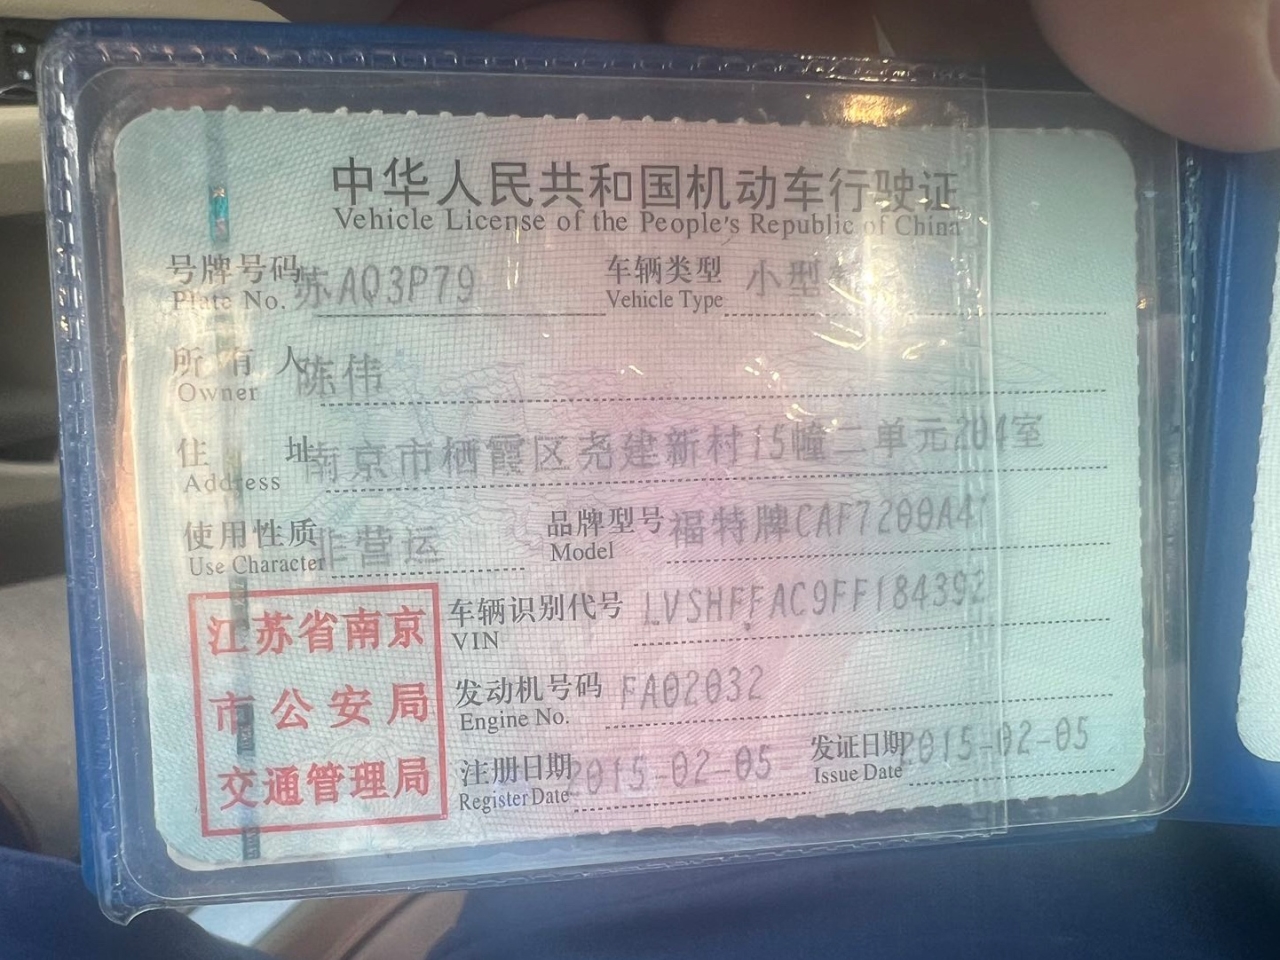 中华人民共和国机动车行驶证
Vehicle License of the People's Republic of China
号牌号码 苏AQ3P79 车辆类型 小型
Plate No. Vehicle Type
所有人 陈伟
Owner
住址 南京市栖霞区尧建新村15幢二单元204室
Address
使用性质 非营运 品牌型号 福特牌CAF7200A4
Use Character Model
江苏省南京
市公安局
交通管理局
车辆识别代号 LVSHFFAC9FF184392
VIN
发动机号码 FA02032
Engine No.
注册日期 2015-02-05 发证日期 2015-02-05
Register Date Issue Date